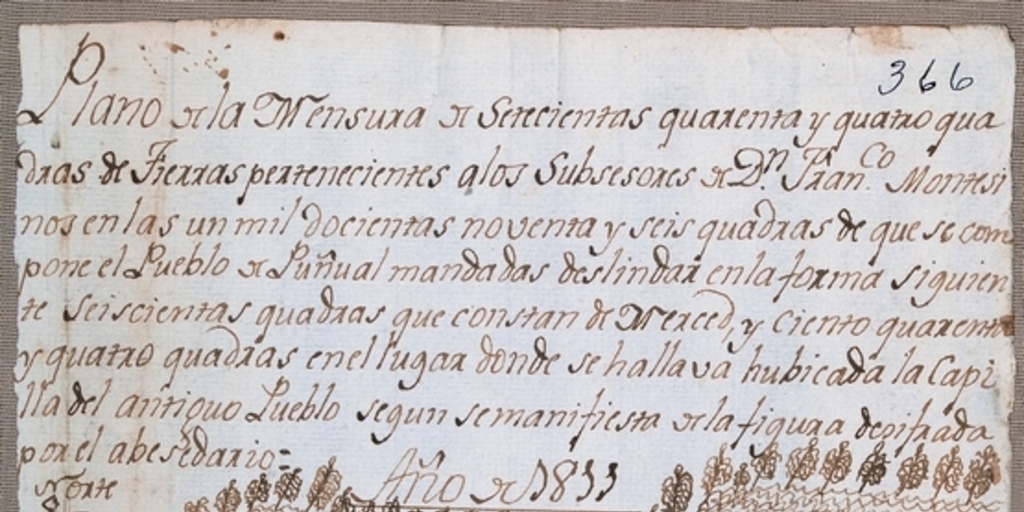 366
Plano de la Mensura de Setecientas quarenta y quatro qua
dras de Tierras pertenecientes a los Subsesores de Dn. Franco. Montesi
nos en las un mil docientas noventa y seis quadras de que se com
pone el Pueblo de Puñual mandadas deslindar en la forma siguien
te seiscientas quadras que constan de Merced, y ciento quarenta
y quatro quadras en el lugar donde se hallava hubicada la Capi
lla del antiguo Pueblo segun se manifiesta de la figura desifrada
por el abesedario=
Año de 1833
Norte